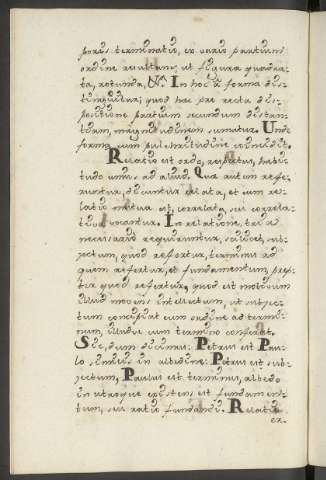 poris terminatio, ex vario partium
ordine resultans, ut figura quadra-
ta, rotunda, &c. In hoc a forma dis-
tinguitur; quod hac pro recta dis-
positione partium secundum distan-
tiam, magnitudinem sumitur. Unde
forma cum pulchritudine coincidit.
Relatio est ordo, respectus, habi-
tudo unius ad aliud. Quae autem refe-
runtur, dicuntur relata, et cum re-
latio mutua est, correlata, seu correla-
tiva vocantur. In relatione, tria
necessario requiruntur, scilicet, sub-
jectum, quod refertur, terminus ad
quem refertur, et fundamentum, prop-
ter quod refertur, quod est motivum
illud movens intellectum, ut subjec-
tum concipiat cum ordine ad termi-
num, illudve cum termino conferat.
Sic, dum dicimus: Petrus est Pau-
lo similis in albedine: Petrus est sub-
jectum, Paulus est terminus, albedo
in utroque existens est fundamen-
tum, seu ratio fundandi. Relatio